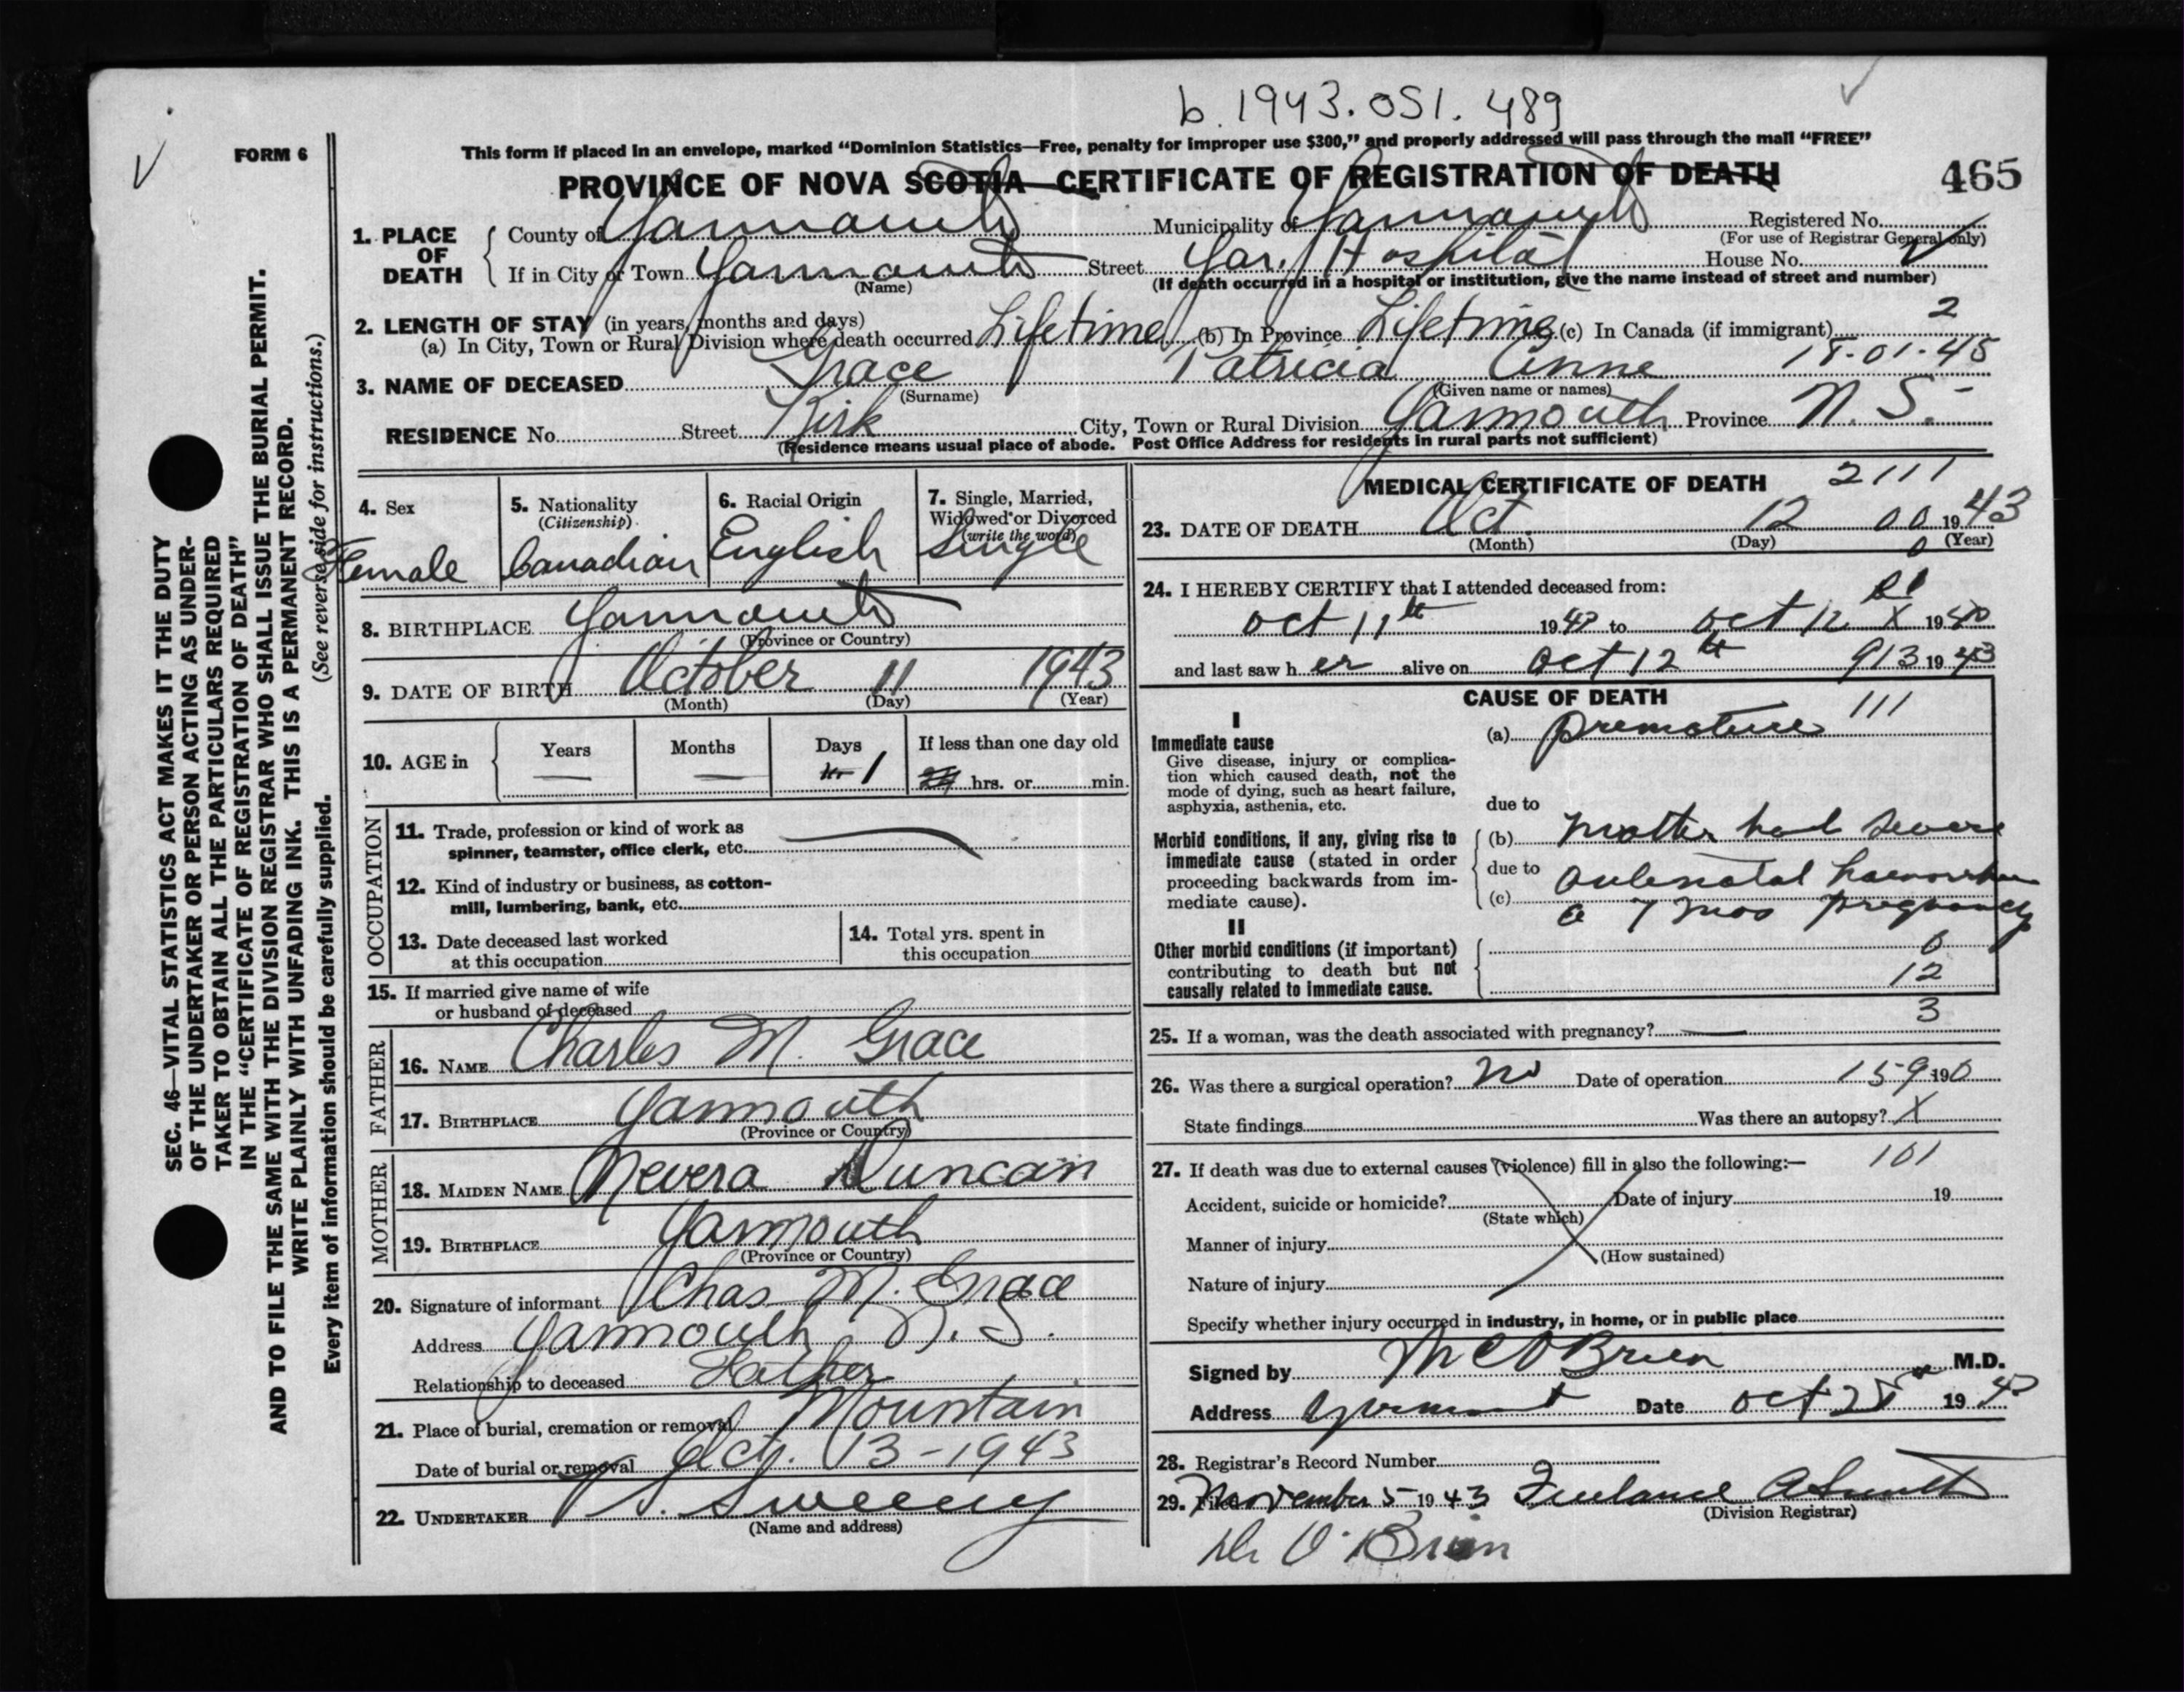 b. 1943. 051. 489
FORM 6
This form if placed in an envelope, marked “Dominion Statistics—Free, penalty for improper use $300,” and properly addressed will pass through the mail “FREE”
PROVINCE OF NOVA SCOTIA—CERTIFICATE OF REGISTRATION OF DEATH
465
SEC. 46—VITAL STATISTICS ACT MAKES IT THE DUTY
OF THE UNDERTAKER OR PERSON ACTING AS UNDER-
TAKER TO OBTAIN ALL THE PARTICULARS REQUIRED
IN THE “CERTIFICATE OF REGISTRATION OF DEATH”
AND TO FILE THE SAME WITH THE DIVISION REGISTRAR WHO SHALL ISSUE THE BURIAL PERMIT.
WRITE PLAINLY WITH UNFADING INK. THIS IS A PERMANENT RECORD.
Every item of information should be carefully supplied. (See reverse side for instructions.)
1. PLACE OF DEATH
County of Yarmouth Municipality of Yarmouth Registered No.
(For use of Registrar General only)
If in City or Town Yarmouth Street Yar. Hospital House No.
(Name) (If death occurred in a hospital or institution, give the name instead of street and number)
2. LENGTH OF STAY (in years, months and days) 2
(a) In City, Town or Rural Division where death occurred Lifetime (b) In Province Lifetime (c) In Canada (if immigrant)
3. NAME OF DECEASED Grace Patricia Anne 18-01-45
(Surname) (Given name or names)
RESIDENCE No. Street Kirk City, Town or Rural Division Yarmouth Province N. S.
(Residence means usual place of abode. Post Office Address for residents in rural parts not sufficient)
4. Sex
Female
5. Nationality
(Citizenship)
Canadian
6. Racial Origin
English
7. Single, Married,
Widowed or Divorced
(write the word)
Single
8. BIRTHPLACE Yarmouth
(Province or Country)
9. DATE OF BIRTH October 11 1943
(Month) (Day) (Year)
10. AGE in Years Months Days If less than one day old
— — 1 hrs. or min.
OCCUPATION
11. Trade, profession or kind of work as
spinner, teamster, office clerk, etc.
12. Kind of industry or business, as cotton-
mill, lumbering, bank, etc.
13. Date deceased last worked
at this occupation
14. Total yrs. spent in
this occupation
15. If married give name of wife
or husband of deceased
FATHER
16. NAME Charles M. Grace
17. BIRTHPLACE Yarmouth
(Province or Country)
MOTHER
18. MAIDEN NAME Nevera Duncan
19. BIRTHPLACE Yarmouth
(Province or Country)
20. Signature of informant Chas M. Grace
Address Yarmouth, N. S.
Relationship to deceased Father
21. Place of burial, cremation or removal Mountain
Date of burial or removal Oct. 13-1943
22. UNDERTAKER V. S. Sweeny
(Name and address)
MEDICAL CERTIFICATE OF DEATH 2111
23. DATE OF DEATH Oct. 12 00 1943
(Month) (Day) (Year)
0
24. I HEREBY CERTIFY that I attended deceased from:
Oct 11th 1943 to Oct 12 X 19
and last saw her alive on Oct 12th 913 1943
CAUSE OF DEATH
I
Immediate cause
Give disease, injury or complica-
tion which caused death, not the
mode of dying, such as heart failure,
asphyxia, asthenia, etc.
(a) premature 111
due to
Morbid conditions, if any, giving rise to
immediate cause (stated in order
proceeding backwards from im-
mediate cause).
(b) Mother had severe
due to antenatal haemorrhage
(c) 7 mos pregnancy
II
Other morbid conditions (if important)
contributing to death but not
causally related to immediate cause.
6
12
3
25. If a woman, was the death associated with pregnancy? —
26. Was there a surgical operation? No Date of operation 159 190
State findings Was there an autopsy? X
27. If death was due to external causes (violence) fill in also the following:— 101
Accident, suicide or homicide? Date of injury 19
(State which)
Manner of injury
(How sustained)
Nature of injury
Specify whether injury occurred in industry, in home, or in public place
Signed by M C O'Brien M.D.
Address Yarmouth Date Oct 28 1943
28. Registrar's Record Number
29. Filed November 5 1943
(Division Registrar)
Dr O'Brien